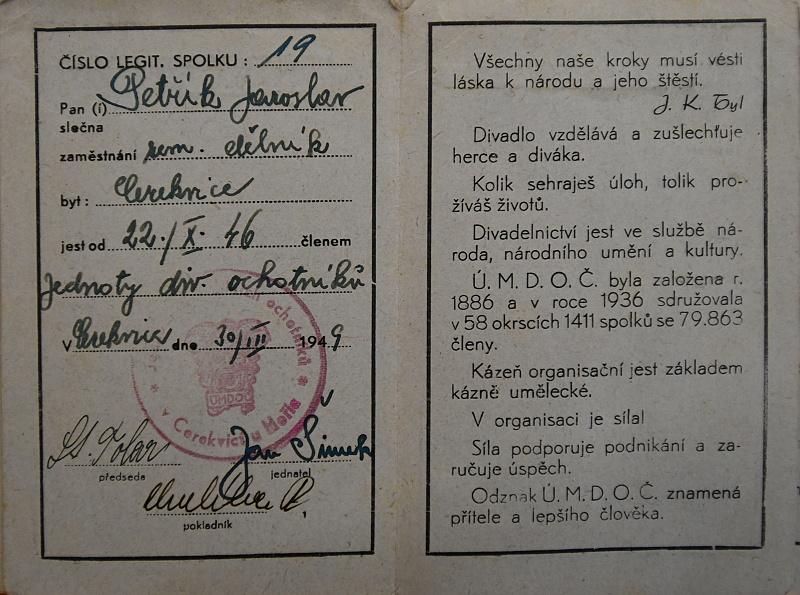 ČÍSLO LEGIT. SPOLKU : 19
Pan (í) Petřík Jaroslav
slečna
zaměstnání zem. dělník
byt : Cerekvice
jest od 22./X. 46 členem
Jednoty div. ochotníků
v Cerekvici dne 30/III 1949
ochotníků
UMDOČ
v Cerekvici u Hořic
St. Tolar
předseda
Jar Šimek
jednatel
pokladník
Všechny naše kroky musí vésti
láska k národu a jeho štěstí.
J. K. Tyl
Divadlo vzdělává a zušlechťuje
herce a diváka.
Kolik sehraješ úloh, tolik pro-
žíváš životů.
Divadelnictví jest ve službě ná-
roda, národního umění a kultury.
Ú. M. D. O. Č. byla založena r.
1886 a v roce 1936 sdružovala
v 58 okrscích 1411 spolků se 79.863
členy.
Kázeň organisační jest základem
kázně umělecké.
V organisaci je síla!
Síla podporuje podnikání a za-
ručuje úspěch.
Odznak Ú. M. D. O. Č. znamená
přítele a lepšího člověka.